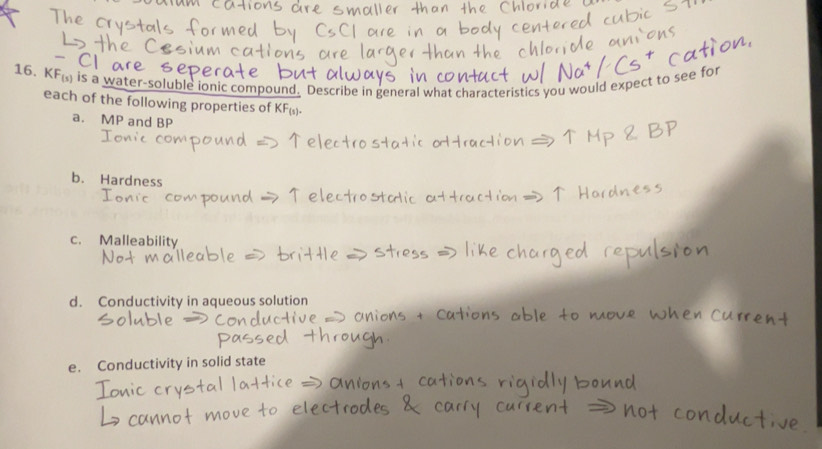 cations are smaller than the Chloride
The crystals formed by CsCl are in a body centered cubic
↳ the Cesium cations are larger than the chloride anions
- Cl are seperate but always in contact w/ Na⁺/Cs⁺ cation.
16. KF(s) is a water-soluble ionic compound. Describe in general what characteristics you would expect to see for
each of the following properties of KF(s).
a. MP and BP
Ionic compound ⇒ ↑ electrostatic attraction ⇒ ↑ MP & BP
b. Hardness
Ionic compound ⇒ ↑ electrostatic attraction ⇒ ↑ Hardness
c. Malleability
Not malleable ⇒ brittle ⇒ stress ⇒ like charged repulsion
d. Conductivity in aqueous solution
Soluble ⇒ conductive ⇒ anions + cations able to move when current
passed through.
e. Conductivity in solid state
Ionic crystal lattice ⇒ anions + cations rigidly bound
↳ cannot move to electrodes & carry current ⇒ not conductive.